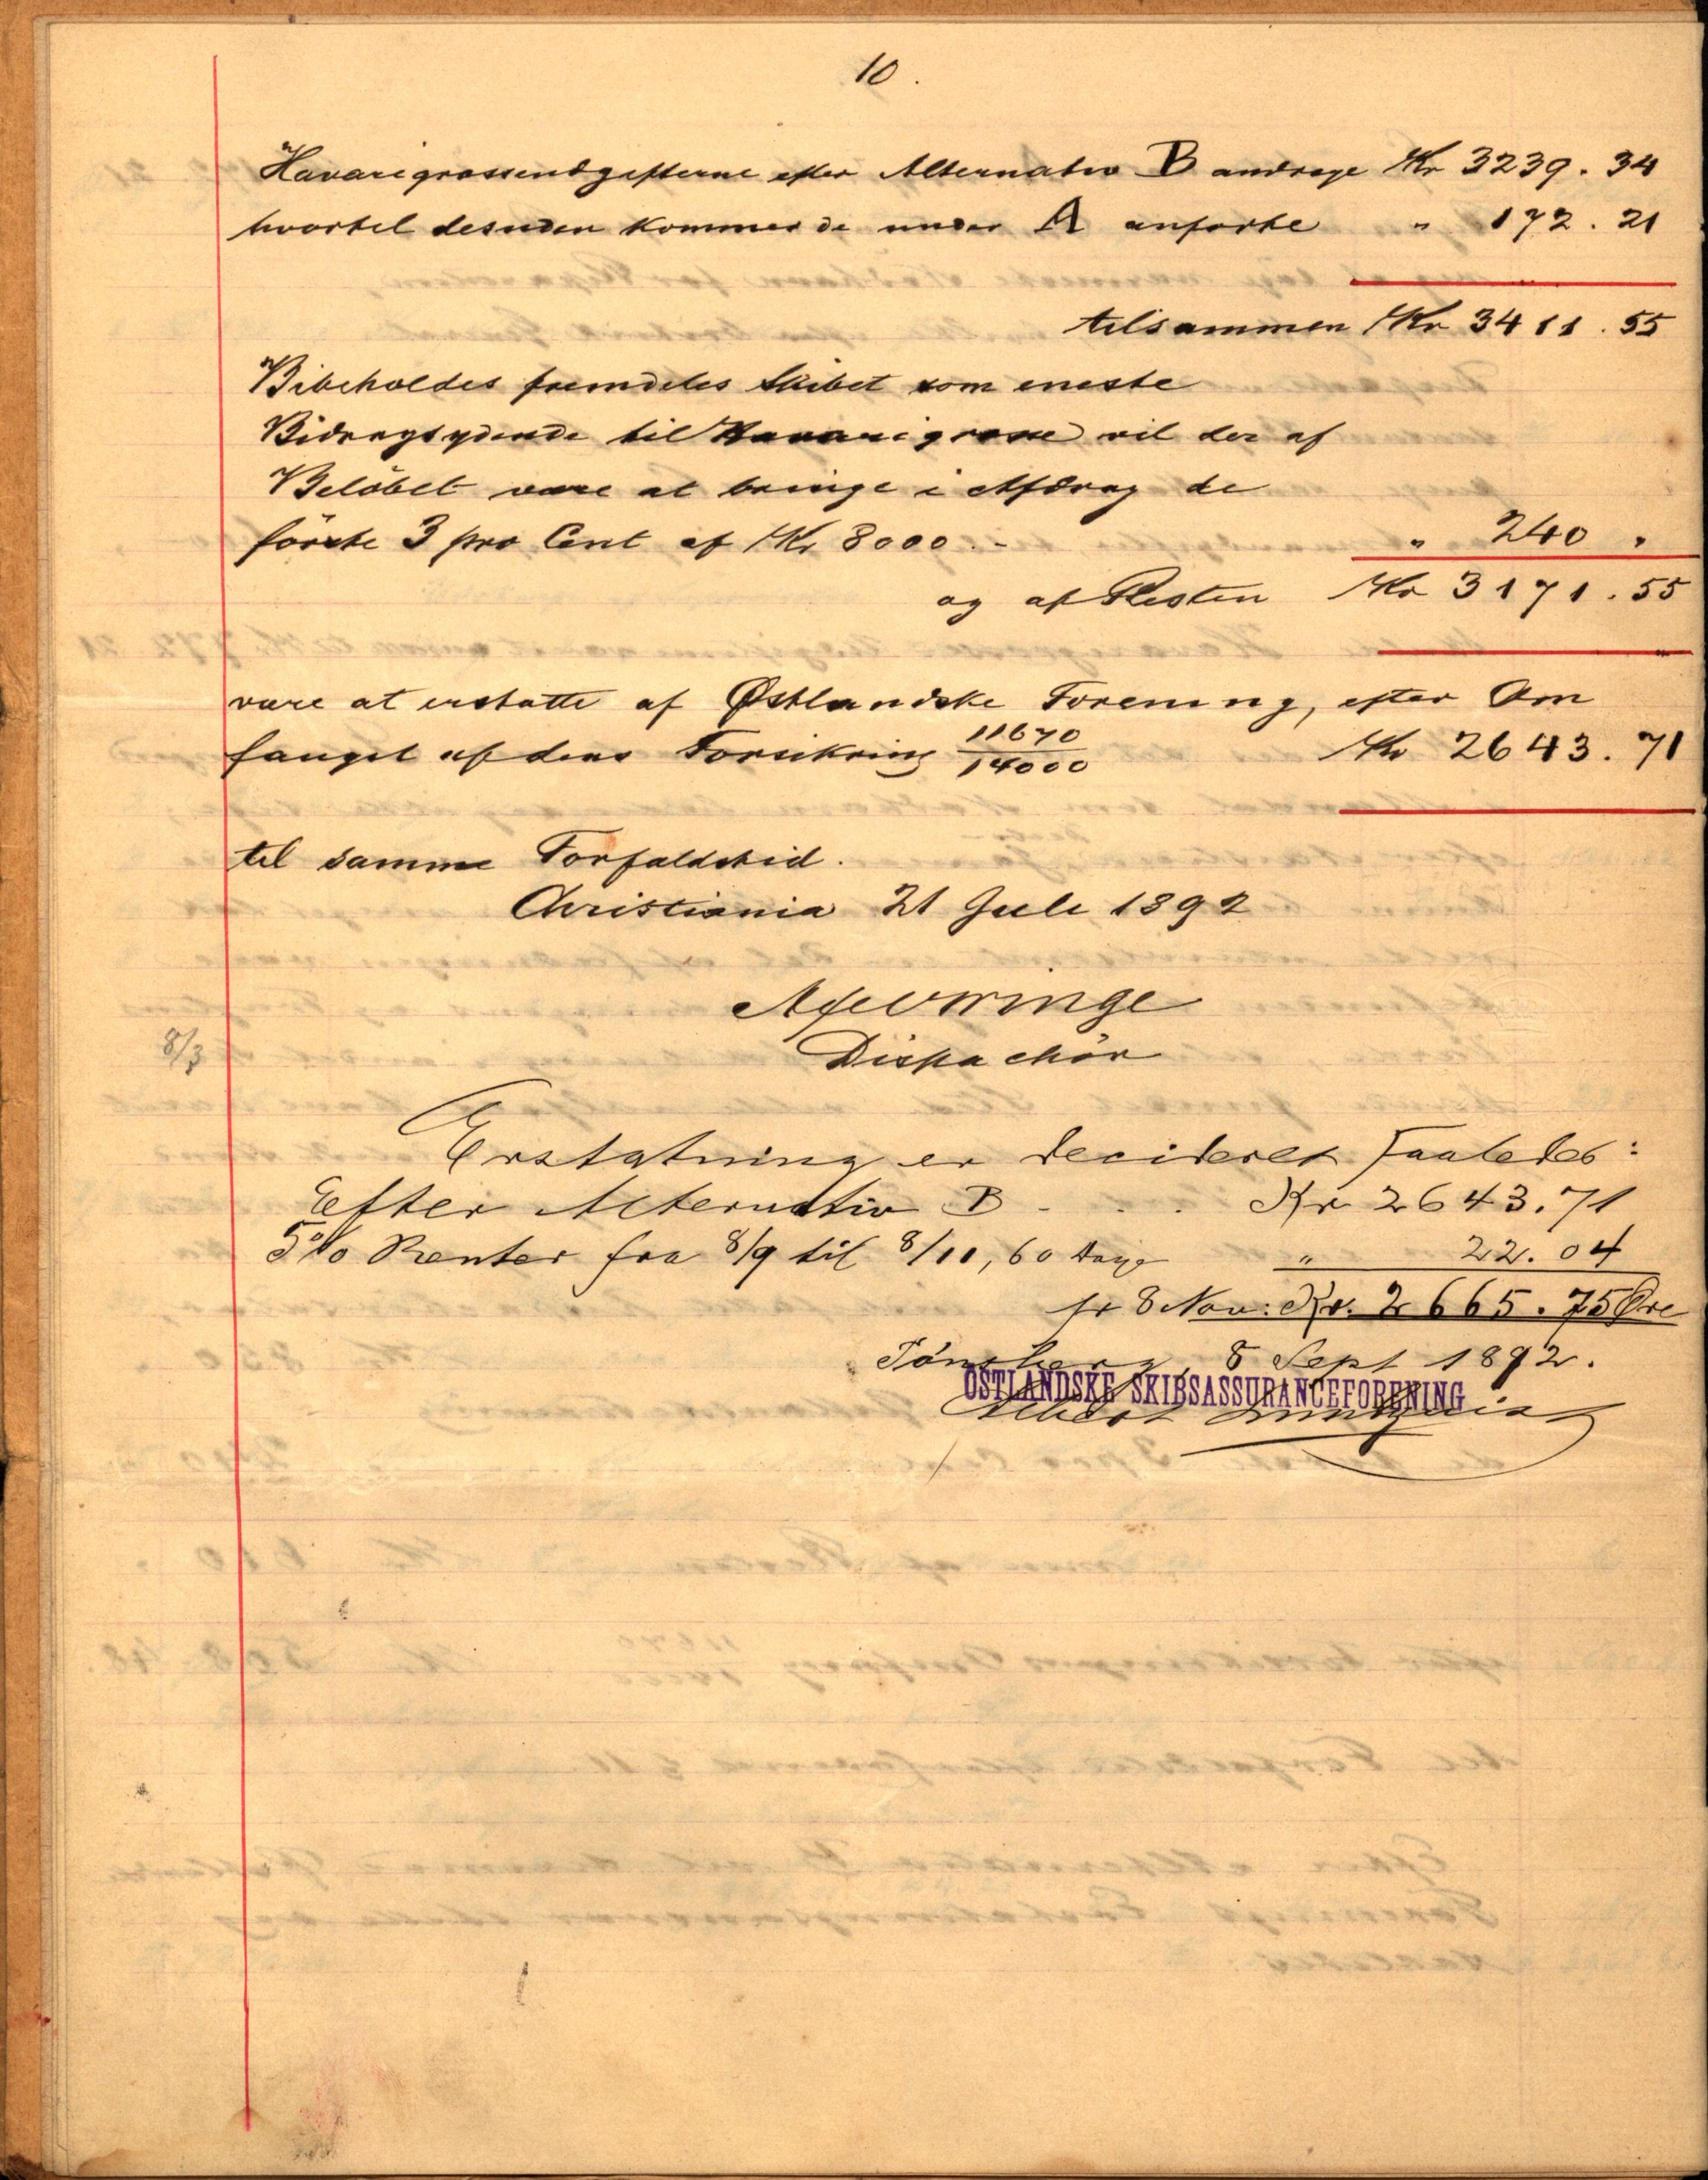 10.
Havarigrossendgifterne efter Alternativ B andrage Kr 3239.34
hvortil desuden kommer de under A anførte " 172.21
tilsammen Kr 3411.55
Bibeholdes fremdeles Skibet som eneste
Bidragsydende til Havarigrosse vil der af
Beløbet være at bringe i Afdrag de
første 3 pro Cent af Kr 8000.- " 240 "
og af Resten Kr 3171.55
være at erstatte af Østlandske Forening, efter Om
fanget af dens Forsikring 11670/14000 Kr 2643.71
til samme Forfaldstid.
Christiania 21 Juli 1892
Dispachör
8/3
Erstatning er decideret saaledes:
Efter Alternativ B - . . Kr 2643.71
5% Renter fra 8/9 til 8/11, 60 Dage " 22.04
pr 8 Nov: Kr. 2665.75 Øre
Tönsberg, 8 Sept 1892.
ØSTLANDSKE SKIBSASSURANCEFORENING
Albert